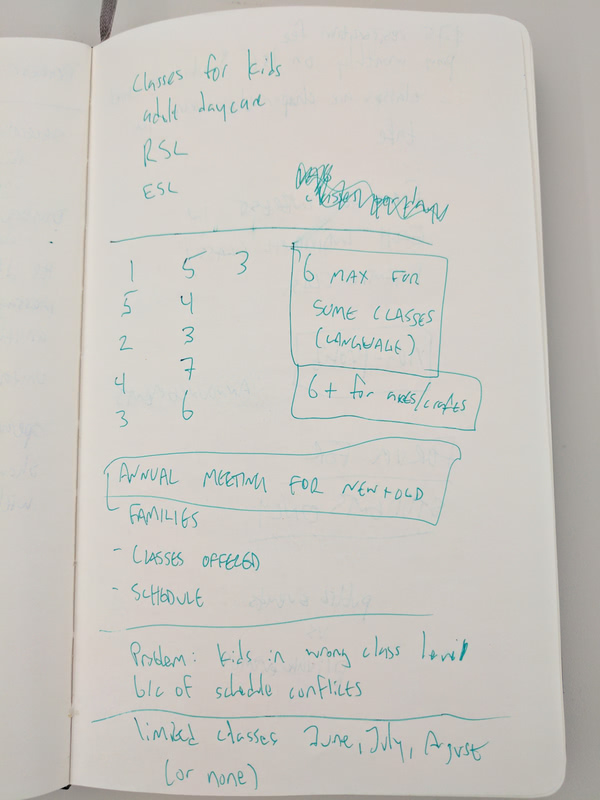 Classes for kids
adult daycare
RSL
ESL
1 5 3
5 4
2 3
4 7
3 6
6 MAX FOR
SOME CLASSES
(LANGUAGE)
6+ for /crafts
ANNUAL MEETING FOR NEW+OLD
FAMILIES
- CLASSES OFFERED
- SCHEDULE
Problem: kids in wrong class level
b/c of schedule conflicts
limited classes June, July, August
(or none)